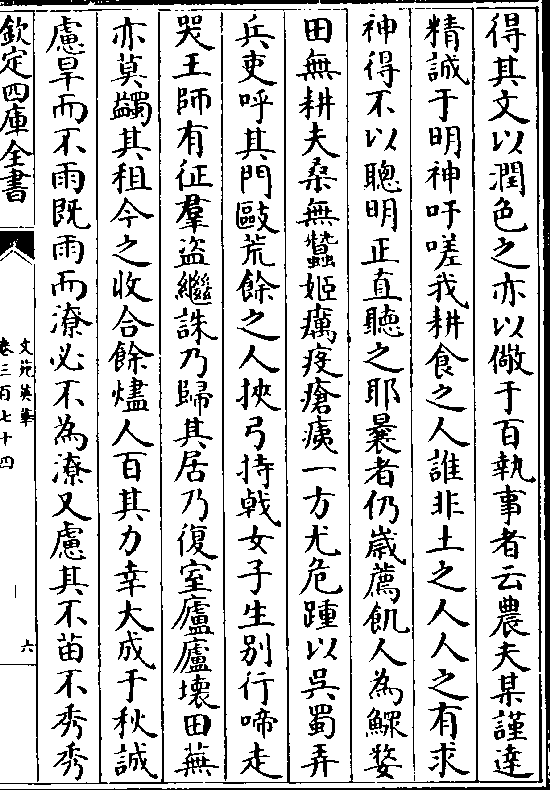 得其文以潤色之亦以儆于百執事者云農夫某謹達
精誠于明神吁嗟我耕食之人誰非土之人人之有求
神得不以聰明正直聽之耶曩者仍歲薦飢人為鰥嫠
田無耕夫桑無蠶姬癘疫瘡痍一方尤危踵以吳蜀弄
兵吏呼其門敺荒餘之人挾弓持戟女子生别行啼走
哭王師有征羣盜繼誅乃歸其居乃復室廬廬壞田蕪
亦莫蠲其租今之收合餘燼人百其力幸大成于秋誠
慮旱而不雨既雨而潦必不為潦又慮其不苗不秀秀
欽定四庫全書
文苑英華
卷三百七十四
六